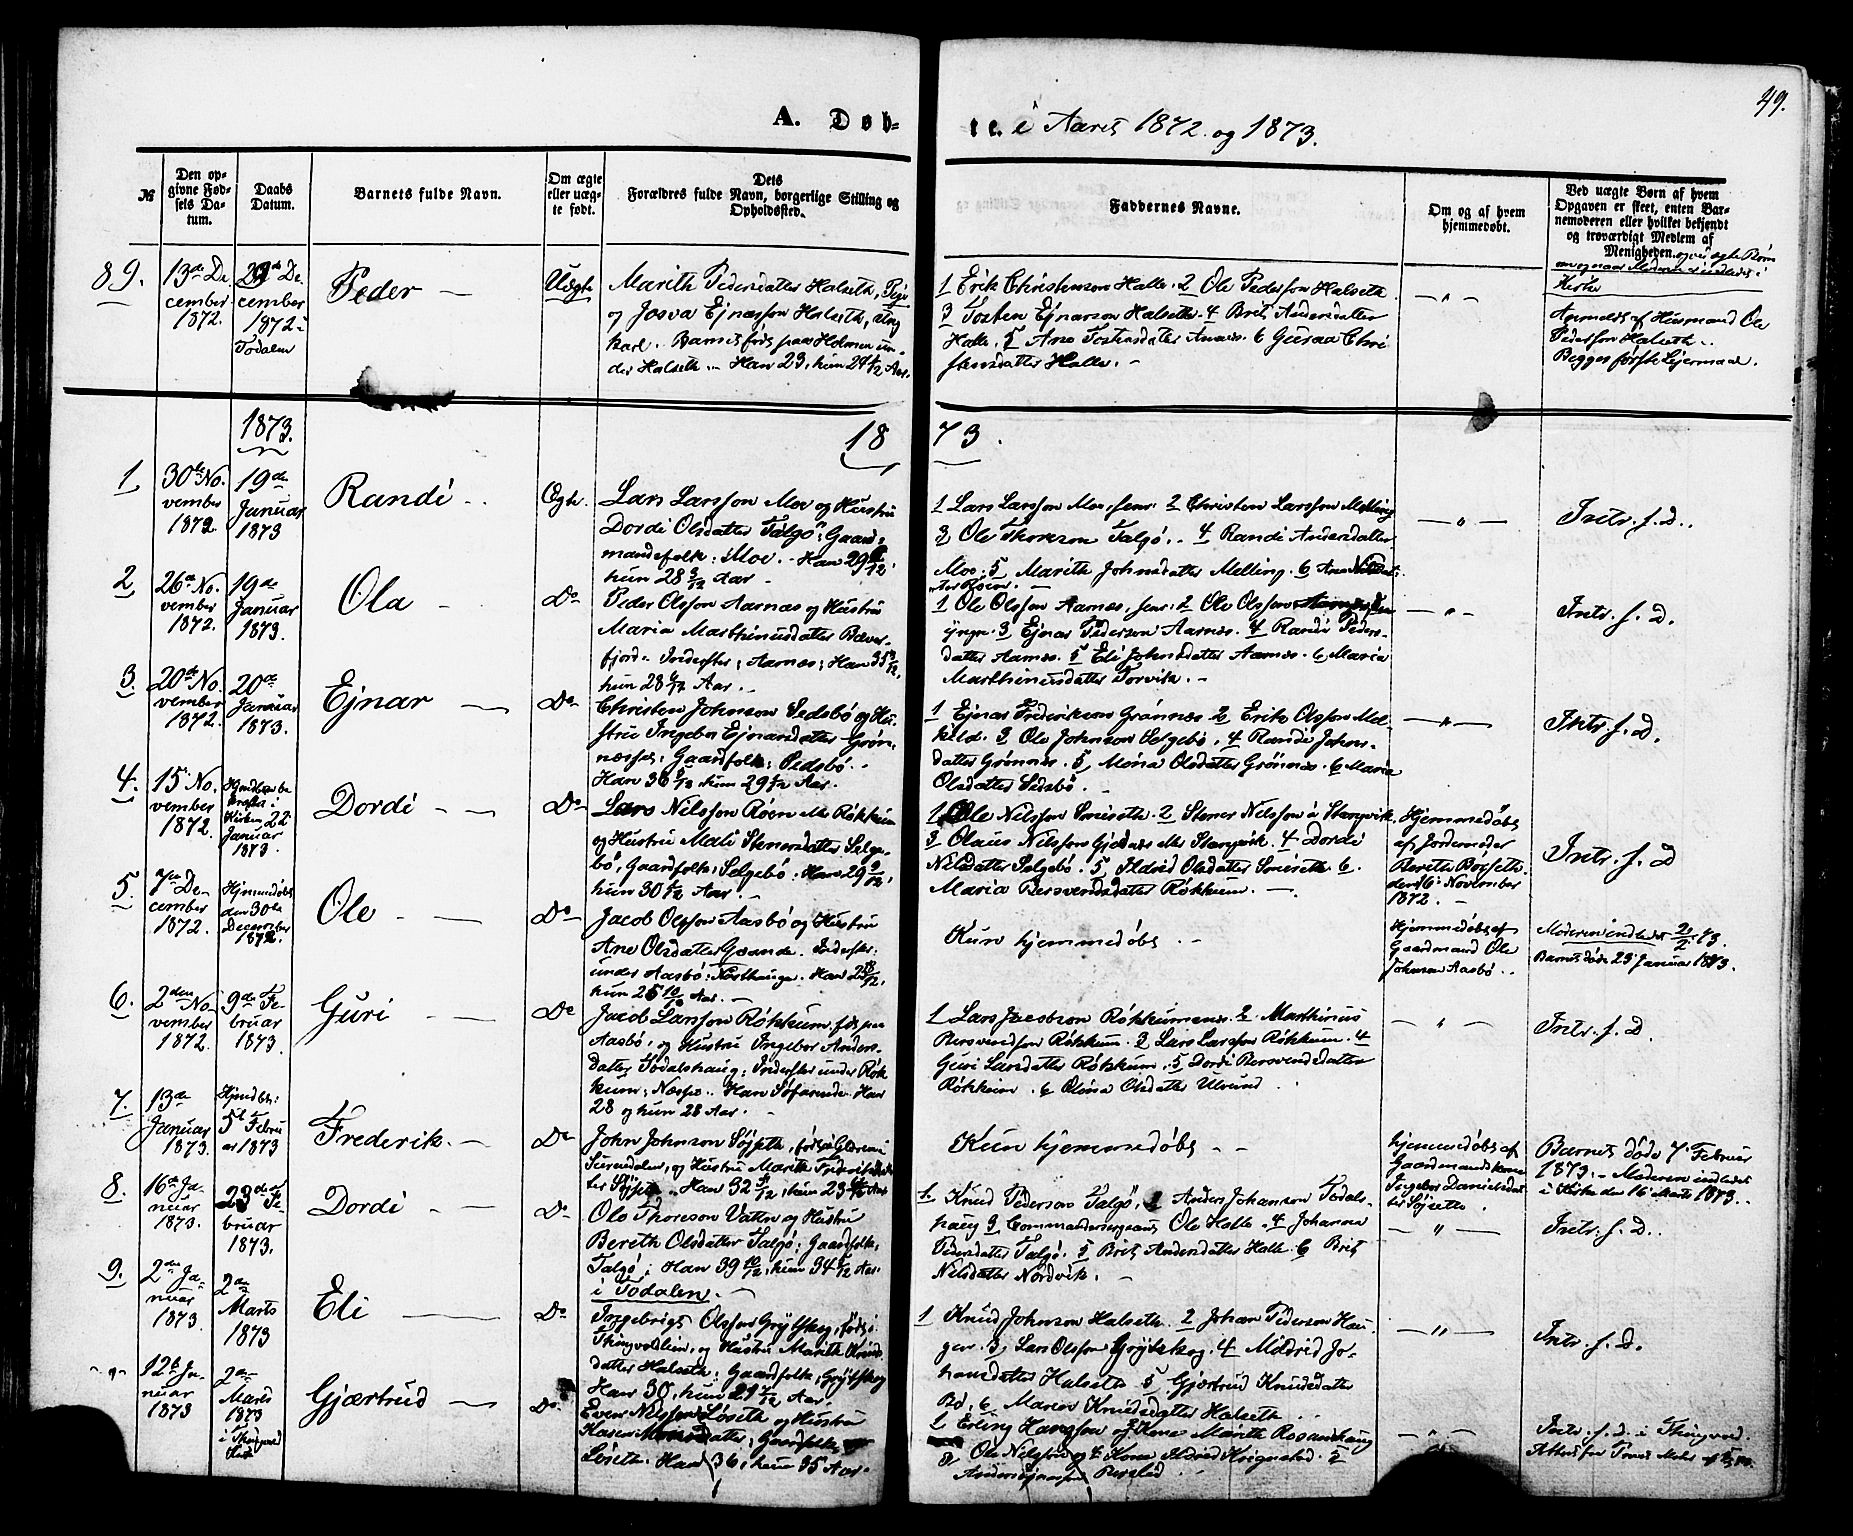 49.
A. Døb-
te. i Aaret 1872. og 1873.
№
Den op-
givne Fød-
sels Da-
tum.
Daabs
Datum.
Barnets fulde Navn.
Om ægte
eller uæg-
te født.
Dets
Forældres fulde Navn, borgerlige Stilling og
Opholdssted.
Faddernes Navne.
Om og af hvem
hjemmedøbt.
Ved uægte Børn af hvem
Opgaven er skeet, enten Bar-
nemoderen eller hvilket bekjendt
og troværdigt Medlem af
Menigheden.
89.
13de De
cember
1872.
De
cember
1872 i
Todalen
Peder
Uægte
Marith Pedersdatter Halseth, Pige
og Josva Ejnarsson Halseth, Ung
karl. Barnet født paa Holmen un-
der Halseth. Han 23, hun 24
1 Erik Christenson Halle. 2 Ole Pederson Halseth
3 Tosten Ejnarson Halseth. 4 Brit Andersdatter
Halle. 5 Ane Tostensdatter 6 Guroe Chri
stensdatter Halle.
Anmeldt af Husmand Ole
Pederson Halseth
Begges første Lejermaal.
1873.
18 73.
1
30te No
vember
1872.
19de
Januar
1873
Randi
Ægte
Lars Larsson Moe og Hustru
Dordi Olsdatter Talgø; Gaard
mandsfolk: Moe. Han 29
hun 28 Aar
1 Lars Larsson Moe, senr. 2 Christen Larsson Melling
3 Ole Thoreson Talgø. 4 Randi Andersdatter
Moe. 5 Marith Johnsdatter Melling. 6 Ane
Intr. s. d.
2
26de No
vember
1872.
19de
Januar
1873.
Ola
Do
Peder Olsson Aarnes og Hustru
Maria Marthinusdatter Bæver
fjord. Inderster; Aarnes; Han 35
hun 28 Aar.
1 Ole Olsson Aarnes, senr. 2 Ole Olsson
yngr. 3 Ejnar Pederson Aarnes. 4 Randi Peders-
datter Aarnes. 5 Eli Johnsdatter Aarnes. 6 Maria
Marthinusdatter Torvik.
Intr. s. d.
3.
20de No
vember
1872.
20de
Januar
1873.
Ejnar
Do
Christen Johnson Sedsbø og Hu-
stru Ingebor Ejnarsdatter Grøn-
nesset; Gaardfolk: Sedsbø.
Han 36, hun 29 Aar.
1 Ejnar Frederikson Grønnes 2 Erik Olsson Mel-
kild. 3 Ole Johnson Selgebø. 4 Randi Johns-
datter Grønnes. 5 Mona Olsdatter Grønnes. 6 Maria
Olsdatter Sedsbø.
Intr. s. d.
4.
15 No
vember
1872.
Kirken 22
Januar
1873.
Dordi
Do
Lars Nilsson Røen Røkkum
og Hustru Mali Stenersdatter Selge-
bø, Gaardfolk: Selgebø. Han 29
hun 30 Aar.
1 Ole Nilsson Sæiseth. 2 Stener Nilsson i Stangvik.
3 Olaus Nilsson Stangvik. 4 Dordi
Nilsdatter Selgebø. 5 Ildrid Olsdatter 6
Maria Bersvendsdatter Røkkum.
Hjemmedøbt
af Jordemoder
Bereth
den 16 November
1872.
Intr. s. d
5.
7de De
cember
1872.
Hjemmedøbt
den 30te
December
1872.
Ole
Do
Jacob Olsson Aasbø og Hustru
Ane Olsdatter Inderster
under Aasbø: Han
hun 25 Aar.
Kun hjemmedøbt.
Hjemmedøbt af
Gaardmand Ole
Johnson Aasbø.
Moderen indledet 73.
Barnet døde 23 Januar 1873.
6.
2den No
vember
1872.
9de Fe-
bruar
1873.
Guri
Do
Jacob Larsson Røkkum, født paa
Aasbø, og Hustru Ingebor Anders-
datter Todalshaug; Inderster under Røk
kum: Næsset. Han Søfarende. Han
28 og hun 28 Aar.
1 Lars Jacobson Røkkumnes 2 Marthinus
Bersvendson Røkkum. 3 Lars Larsson Røkkum. 4
Guri Larsdatter Røkkum. 5 Dordi Bersvendsdatter
Røkkum. 6 Olina Olsdatter Ulvund
Intr. s. d.
7.
13de
Januar
1873.
5t Febru
ar 1873
Frederik.
Do
John Johnson Søjseth, født
Surendalen, og Hustru Marith Frederiksdat
ter Søjseth. Han 32, hun 23 Aar
Kun hjemmedøbt
hjemmedøbt af
Gaardmandskone
Ingebor Danielsdat
ter Søjseth.
Barnet døde 7 Februar
1873. Moderen indledet
i Kirke den 16 Marts 1873.
8.
16de Ja-
nuar
1873.
23de Fe-
bruar
1873.
Dordi
Do
Ole Thoreson Vatten og Hustru
Bereth Olsdatter Talgø: Gaardfolk:
Talgø; Han 39 10/12, hun 34 Aar.
i Todalen.
1. Knud Pederson Talgø, 2 Anders Johanson Todals-
haug 3 Commandersergeant Ole Halle. 4 Johanna
Pedersdatter Talgø. 5 Brit Andersdatter Halle. 6 Brit
Nilsdatter Nordvik.
Intr. s. d.
9.
2den Ja-
nuar
1873.
2de
Marts
1873
Eli
Do
Ingebrigt Olsson Grøtskog, født i
Thingvoldlien, og Hustru Marith Knuds
datter Halseth; Gaardfolk; Grøtskog
Han 30, hun 29 Aar.
1 Knud Johnson Halseth. 2 Johan Pederson Hau-
gen. 3 Lars Olsson Grøtskog. 4 Mildrid Jo-
hansdatter Halseth 5 Gjærtrud Knudsdatter
Bø. 6 Marit Knudsdatter Halseth.
Intr. s. d.
12te Ja-
nuar
1873
2den
Marts
1873
i Thingvold
Kirke
Gjærtrud
Do
Even Nilsson Løseth og Hustru
Karen datter; Gaardfolk
Løseth. Han 36, hun 35 Aar.
1 Erling Hansson og Kone Marith Rosanhaug
3 Ole Nilsson og 4 Kone Ildrid
Intr. s. d. i Thingvold.